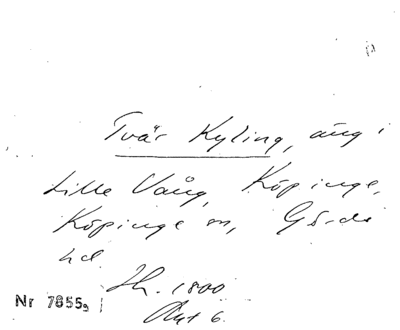 Tvär Kyling, äng i
Lille Vång, Köpinge,
Köpinge sn, Gärds
hd.
Lh. 1800
Akt 6.
Nr 7855